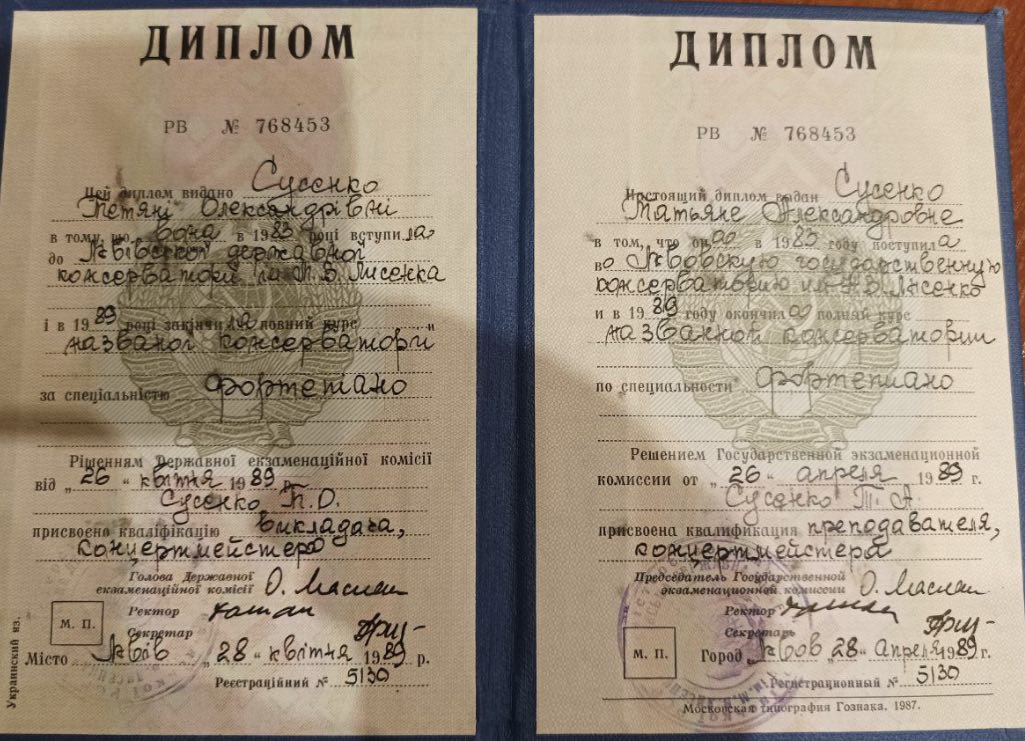 ДИПЛОМ
РВ № 768453
Цей диплом видано Сусенко
Тетяні Олександрівні
в тому, що вона в 1983 році вступила
до Львівської державної
консерваторії ім. М. В. Лисенка
і в 1989 році закінчила повний курс
названої консерваторії
за спеціальністю фортепіано
Рішенням Державної екзаменаційної комісії
від „26“ квітня 1989 р.
Сусенко Т. О.
присвоєно кваліфікацію викладача,
концертмейстера
Голова Державної
екзаменаційної комісії
Ректор
Секретар
М. П.
Місто Львів „28“ квітня 1989 р.
Реєстраційний № 5130
Украинский яз.
ДИПЛОМ
РВ № 768453
Настоящий диплом выдан Сусенко
Татьяне Александровне
в том, что она в 1983 году поступила
во Львовскую государственную
консерваторию им. Н. В. Лысенко
и в 1989 году окончила полный курс
названной консерватории
по специальности фортепиано
Решением Государственной экзаменационной
комиссии от „26“ апреля 1989 г.
Сусенко Т. А.
присвоена квалификация преподавателя,
концертмейстера
Председатель Государственной
экзаменационной комиссии
Ректор
Секретарь
М. П.
Город Львов „28“ апреля 1989 г.
Регистрационный № 5130
Московская типография Гознака. 1987.